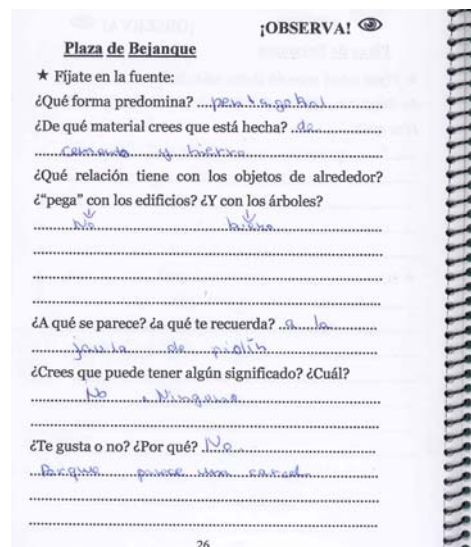 ¡OBSERVA!
Plaza de Bejanque
★ Fíjate en la fuente:
¿Qué forma predomina? pentagonal
¿De qué material crees que está hecha? de
cemento y hierro
¿Qué relación tiene con los objetos de alrededor?
¿“pega” con los edificios? ¿Y con los árboles?
No
¿A qué se parece? ¿a qué te recuerda? a la
jaula de piolín
¿Crees que puede tener algún significado? ¿Cuál?
No, Ninguno
¿Te gusta o no? ¿Por qué? No
Porque parece una carcel
26